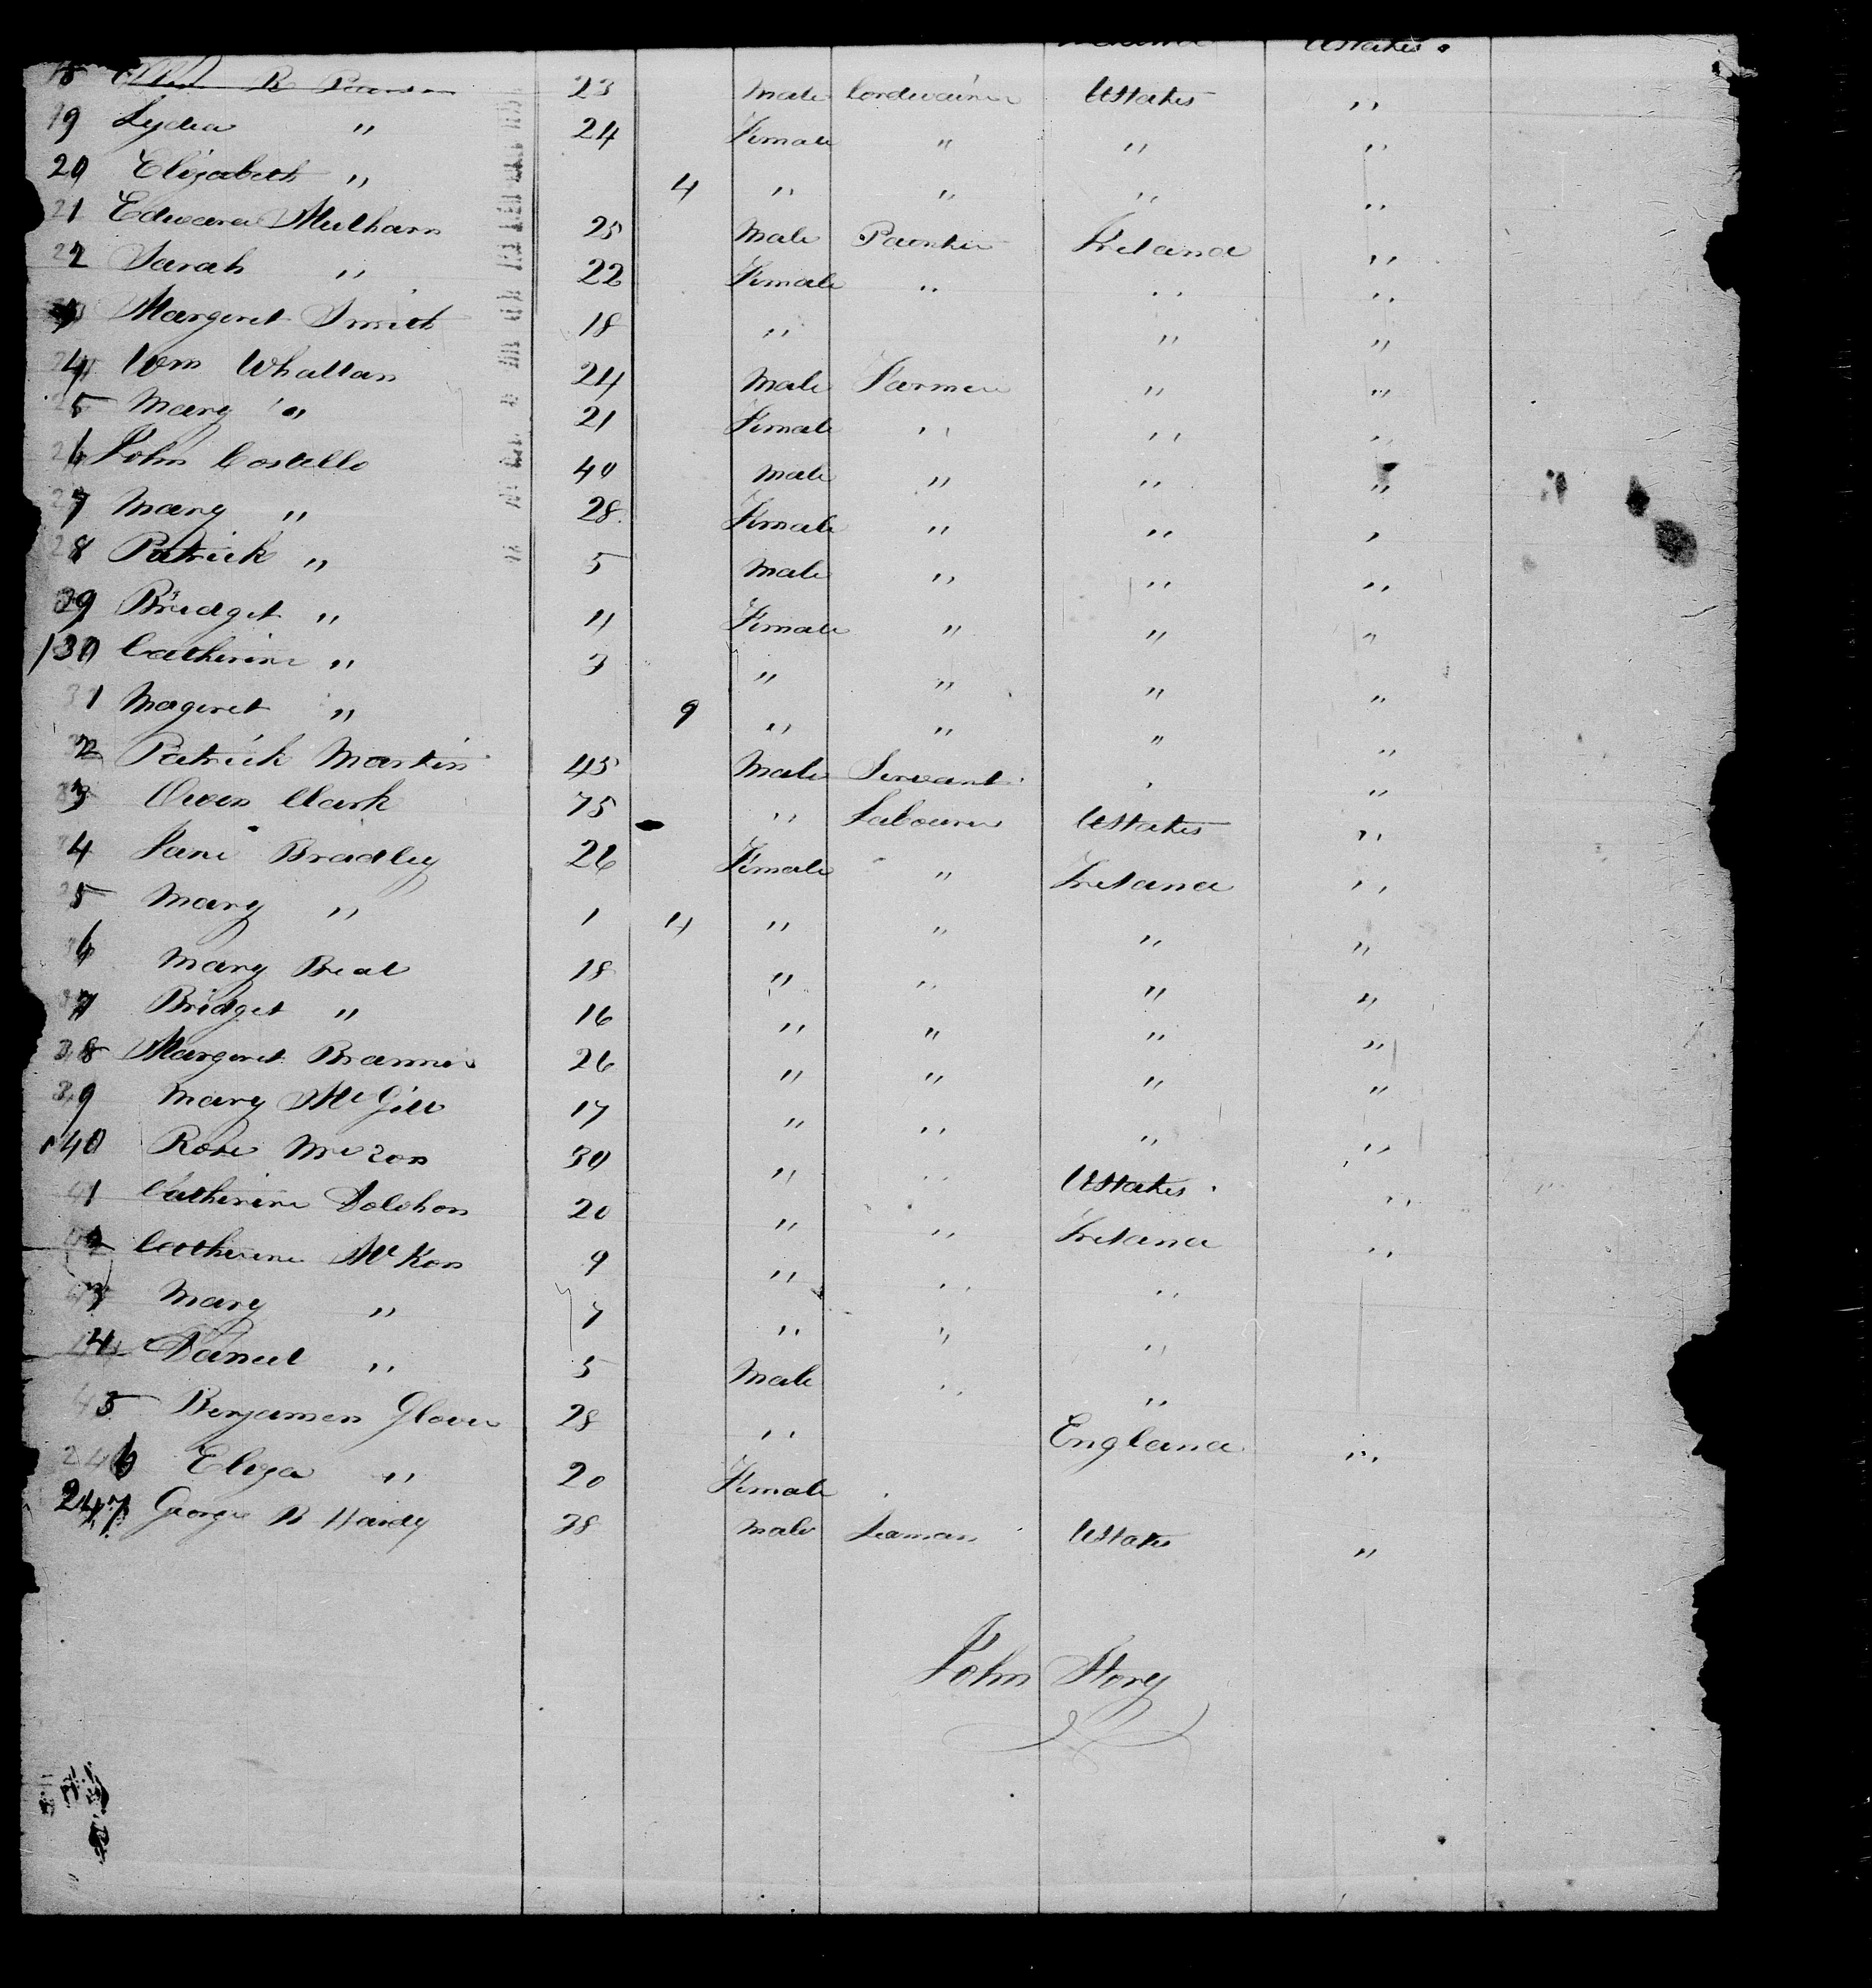 UStates.
18 R 23 Male Cordwainer UStates "
19 Lydia " 24 Female " " "
20 Elizabeth " 4 " " " "
21 Edward Mulharn 25 Male Painter Ireland "
22 Sarah " 22 Female " " "
Margeret Smith 18 " " "
24 Wm Whallan 24 Male Farmer " "
25 Mary " 21 Female " " "
26 John Costello 40 Male " " "
27 Mary " 28 Female " " "
28 Patrick " 5 Male " " "
29 Bridget " 4 Female " " "
130 Catherine " 3 " " " "
31 Mageret " 9 " " " "
32 Patrick Martin 45 Male Servant " "
33 Owen Clark 75 " Labourer UStates "
34 Jane Bradley 26 Female " Ireland "
35 Mary " 1 4 " " " "
36 Mary Beal 18 " " " "
37 Bridget " 16 " " " "
38 Margeret 26 " " " "
39 Mary McGill 17 " " " "
140 Rose 30 " " UStates "
41 Catherine Dolohon 20 " " Ireland "
42 Catherine McKon 9 " " "
43 Mary " 7 " " "
44 Daniel " 5 Male " "
45 Benjamen Glover 28 " England "
246 Eliza " 20 Female
247 George B Hardy 38 Male Seaman UStates "
John Story